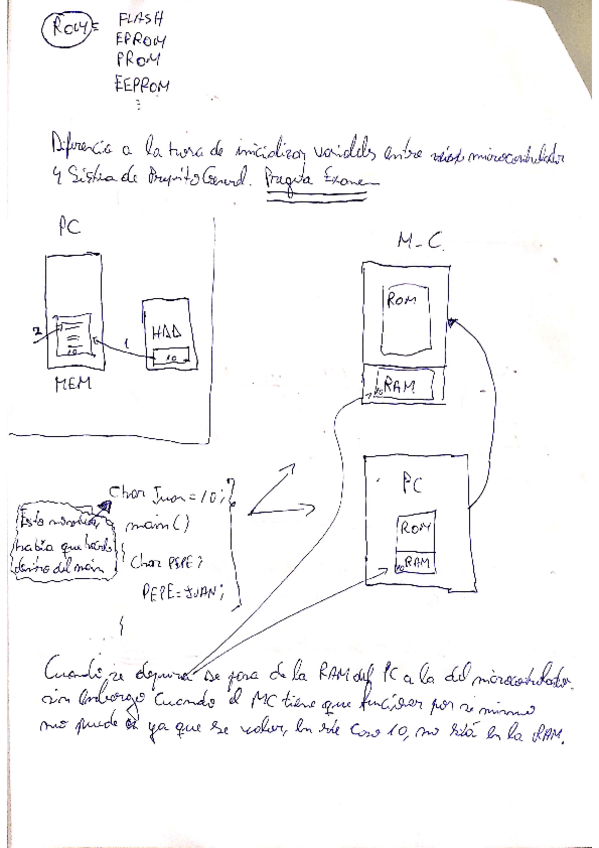 ROM = FLASH
EPROM
PROM
EEPROM
Diferencia a la hora de inicializar variables entre microcontrolador
y Sistema de Proposito General. Pregunta Examen
PC
M-C.
ROM
HDD
2
1
10
10
MEM
10 RAM
PC
ROM
10 RAM
Char Juan = 10;
main()
{
Char PEPE;
PEPE = JUAN;
}
Esto
había que hacerlo
dentro del main
Cuando se depura se pasa de la RAM del PC a la del microcontrolador.
sin embargo cuando el MC tiene que funcionar por si mismo
no puede ya que ese valor, en este caso 10, no está en la RAM.